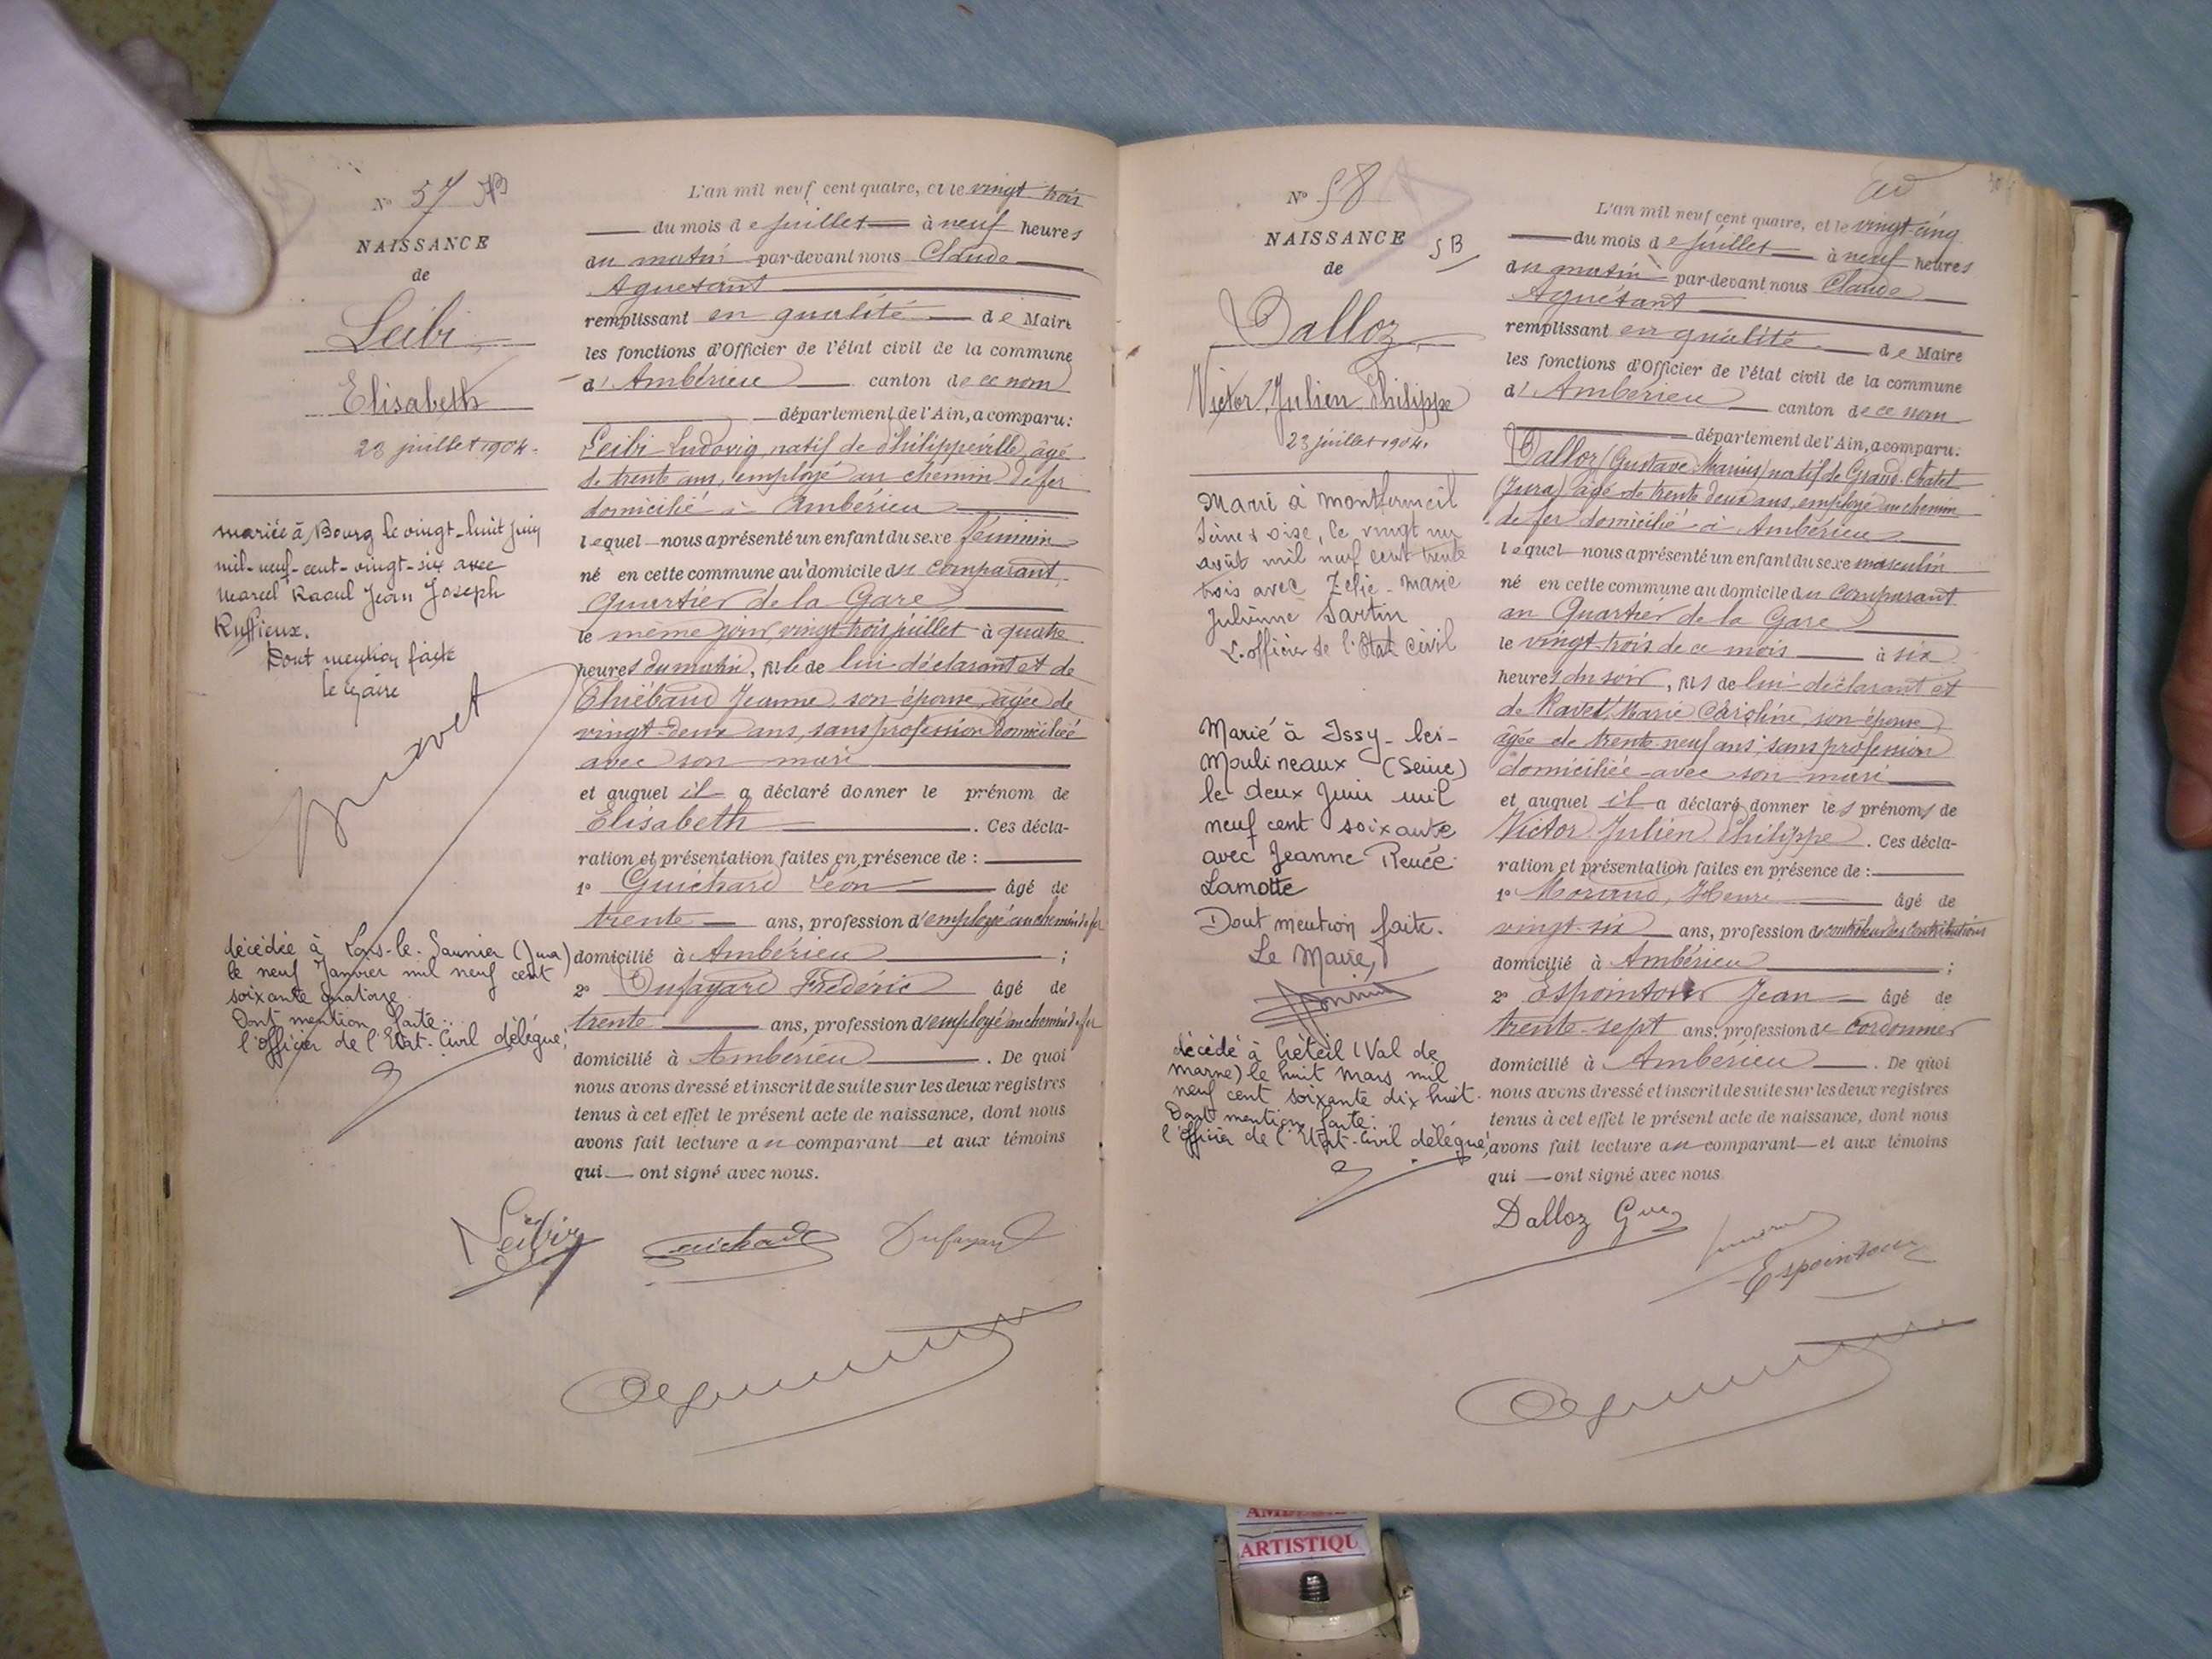 N° 57
NAISSANCE
de
Leibi
Elisabeth
23 juillet 1904.
mariée à Bourg le vingt-huit juin
mil-neuf-cent-vingt-six avec
Marcel Raoul Jean Joseph
Ruffieux.
Dont mention faite
le Maire
décédée à Lons-le-Saunier (Jura)
le neuf Janvier mil neuf cent
soixante quatorze
Dont mention faite:
l'officier de l'Etat-Civil délégué,
L'an mil neuf cent quatre, et le vingt trois
du mois de juillet à neuf heures
du matin par-devant nous Claude
Aguétant
remplissant en qualité de Maire
les fonctions d'Officier de l'état civil de la commune
d'Ambérieu canton de ce nom
département de l'Ain, a comparu:
Leibi Ludovig natif de Philippeville, âgé
de trente ans, employé au chemin de fer
domicilié à Ambérieu
lequel nous a présenté un enfant du sexe féminin
né en cette commune au domicile du comparant
Quartier de la Gare
le même jour vingt trois juillet à quatre
heures du matin, fille de lui déclarant et de
Thiébaud Jeanne son épouse, âgée de
vingt-deux ans, sans profession domiciliée
avec son mari
et auquel il a déclaré donner le prénom de
Elisabeth. Ces décla-
ration et présentation faites en présence de :
1° Guichard Léon âgé de
trente ans, profession d'employé au chemin de fer
domicilié à Ambérieu ;
2° Dufayard Frédéric âgé de
trente ans, profession d'employé au chemin de fer
domicilié à Ambérieu. De quoi
nous avons dressé et inscrit de suite sur les deux registres
tenus à cet effet le présent acte de naissance, dont nous
avons fait lecture au comparant et aux témoins
qui ont signé avec nous.
Leibi Guichard Dufayard
N° 58
SB
NAISSANCE
de
Dalloz
Victor, Julien Philippe
23 juillet 1904.
Marié à Montfermeil
Seine & Oise, le vingt un
août mil neuf cent trente
trois avec Zélie-Marie
Julienne Sartin
L'officier de l'Etat Civil
Marié à Issy-les-
Moulineaux (Seine)
le deux Juin mil
neuf cent soixante
avec Jeanne Renée
Lamotte
Dont mention faite.
Le Maire,
décédé à Créteil (Val de
marne) le huit Mars mil
neuf cent soixante dix huit.
Dont mention faite:
l'officier de l'Etat-Civil délégué,
L'an mil neuf cent quatre, et le vingt-cinq
du mois de juillet à neuf heures
du matin par-devant nous Claude
Aguétant
remplissant en qualité de Maire
les fonctions d'Officier de l'état civil de la commune
d'Ambérieu canton de ce nom
département de l'Ain, a comparu:
Dalloz (Gustave Marius) natif de Grand-Châtel
(Jura) âgé de trente deux ans, employé au chemin
de fer domicilié à Ambérieu
lequel nous a présenté un enfant du sexe masculin
né en cette commune au domicile du comparant
au Quartier de la Gare
le vingt-trois de ce mois à six
heures du soir, fils de lui déclarant et
de Ravet, Marie Caroline, son épouse,
âgée de trente-neuf ans, sans profession
domiciliée avec son mari
et auquel il a déclaré donner les prénoms de
Victor Julien Philippe. Ces décla-
ration et présentation faites en présence de :
1° Morand, Henri âgé de
vingt-six ans, profession de contrôleur des Contributions
domicilié à Ambérieu ;
2° Espointour Jean âgé de
trente-sept ans, profession de cordonnier
domicilié à Ambérieu. De quoi
nous avons dressé et inscrit de suite sur les deux registres
tenus à cet effet le présent acte de naissance, dont nous
avons fait lecture au comparant et aux témoins
qui ont signé avec nous
Dalloz Gve
Espointour
ARTISTIQU